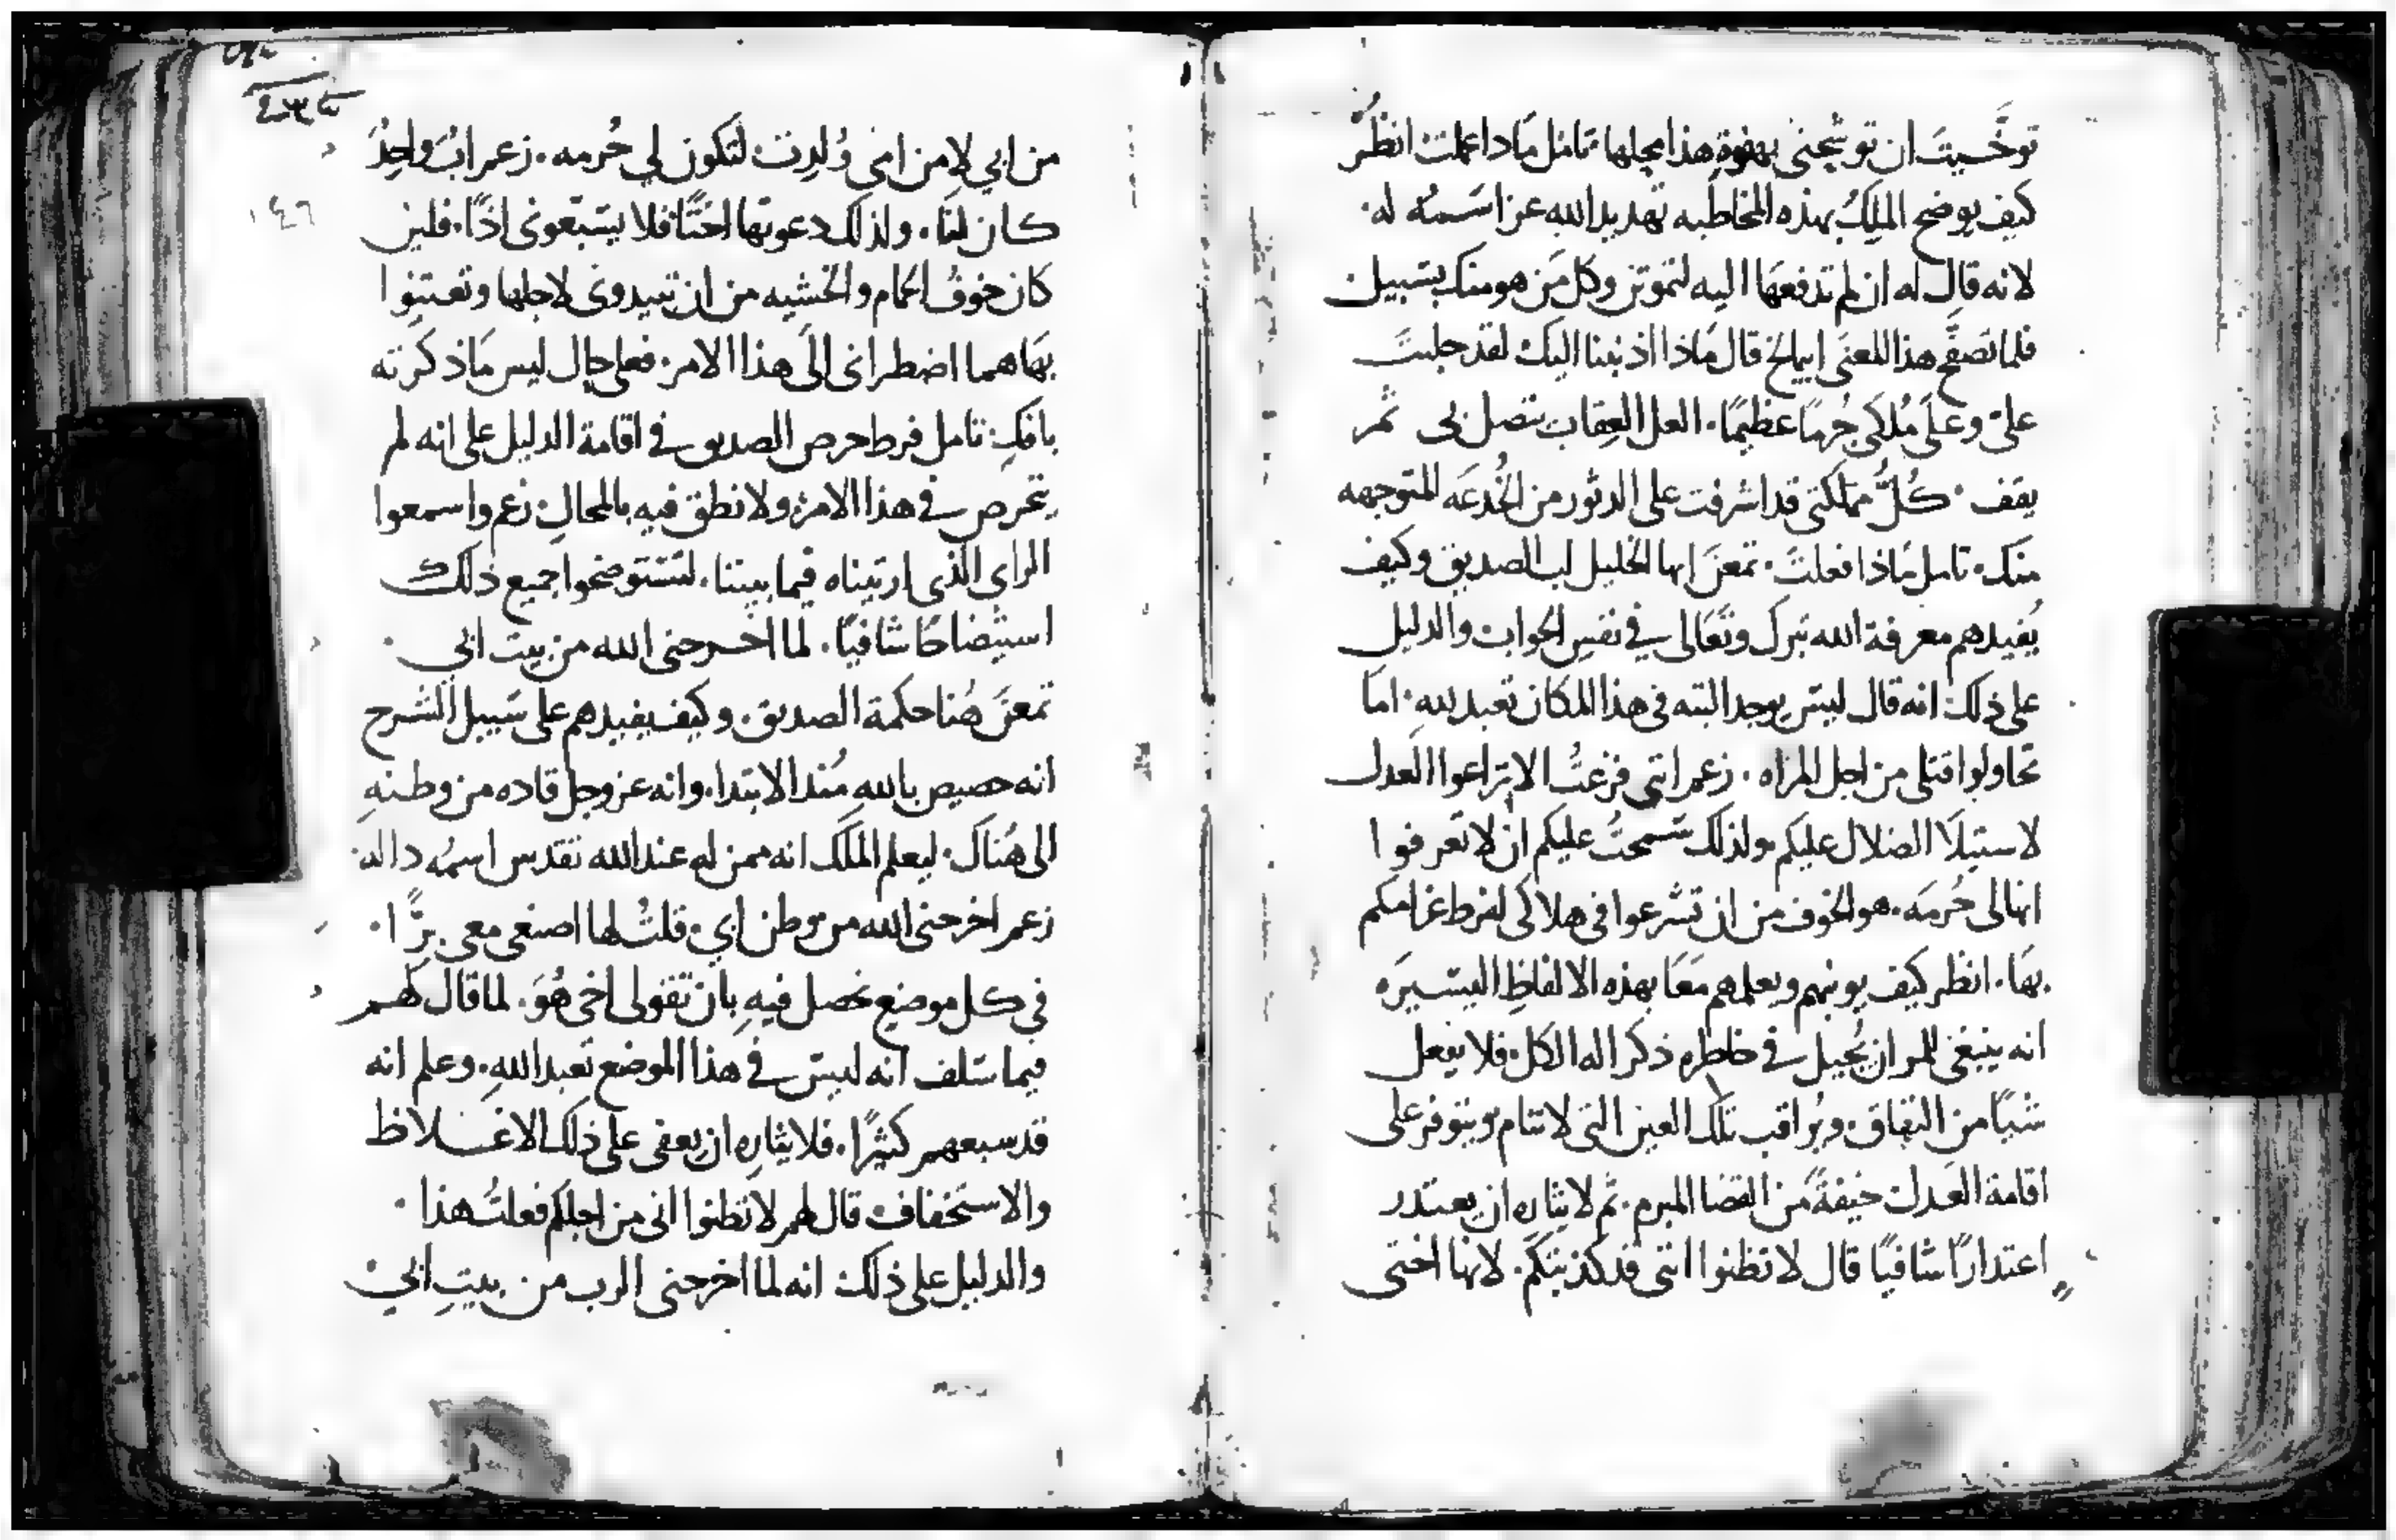 توخيت ان توشجني بهفوة هذا محلها. تامل ماذا عملت انظر
كيف يوضح الملك بهذه المخاطبه تهديد الله عز اسمه له.
لانه قال له ان لم تدفعها اليه لتموتن وكل من هو منك بسبيل
فلما تصفح هذا المعنى ابيمالخ قال ماذا اذنبنا اليك لقد جلبت
علي وعلى ملكي جرما عظيما. العل العقاب يتصل بي ثم
يقف. كل مملكتي قد اشرفت على الدثور من الخدعه المتوجهه
منك. تامل ماذا فعلت. تمعن ايها الخليل لب الصديق وكيف
يفيدهم معرفة الله تبرك وتعالى في نفس الجواب والدليل
على ذلك انه قال ليس يوجد البته في هذا المكان تعبد لله. اما
تحاولوا قتلي من اجل المراه. زعم انني فزعت الا تراعوا العدل
لاستيلا الضلال عليكم ولذلك سمحت عليكم ان لا تعرفوا
انها لى حرمه. هو الخوف من ان تشرعوا في هلاكي لفرط غرامكم
بها. انظر كيف يونبهم ويعلمهم معا بهذه الالفاظ اليسيره
انه ينبغي للمر ان يجيل في خاطره ذكر اله الكل. فلا يفعل
شيا من النفاق. ويراقب تلك العين التي لا تنام ويتوفر على
اقامة العدل خيفة من القضا المبرم. ثم لايثاره ان يعتدر
اعتدارا شافيا قال لا تظنوا انني قد كذبتكم. لانها اختى
٢٣٤
١٤٦
من ابي لا من امي ولدت لتكون لي حرمه. زعم اب واحد
كان لنا. ولذلك دعوتها اختا فلا يستبعوني اذا. فلين
كان خوف الحمام والخشيه من ان تبيدوني لاجلها وتعتنوا
بها هما اضطراني الى هذا الامر. فعلى حال ليس ماذكرته
بافك. تامل فرط حرص الصديق في اقامة الدليل على انه لم
يتخرص في هذا الامر. ولا نطق فيه بالمحال. زعم واسمعوا
الراي الذي ارتيناه فيما بيننا. لتستوضحوا جميع ذلك
استيضاحا شافيا. لما اخرجني الله من بيت ابي.
تمعن هنا حكمة الصديق. وكيف يفيدهم على سبيل الشرح
انه حصيص بالله منذ الابتدا. وانه عز وجل قاده من وطنه
الى هناك. ليعلم الملك انه ممن له عند الله تقدس اسمه داله.
زعم اخرجني الله من وطن ابي. قلت لها اصنعي معي برا.
في كل موضع نحصل فيه بان تقولي اخي هو. لما قال لهم
فيما سلف انه ليس في هذا الموضع تعبد الله. وعلم انه
قد سبعهم كثيرا. فلايثاره ان يعفي على ذلك الاغلاظ
والاستخفاف قال لهم لا تظنوا اني من اجلكم فعلت هذا.
والدليل على ذلك انه لما اخرجني الرب من بيت ابي